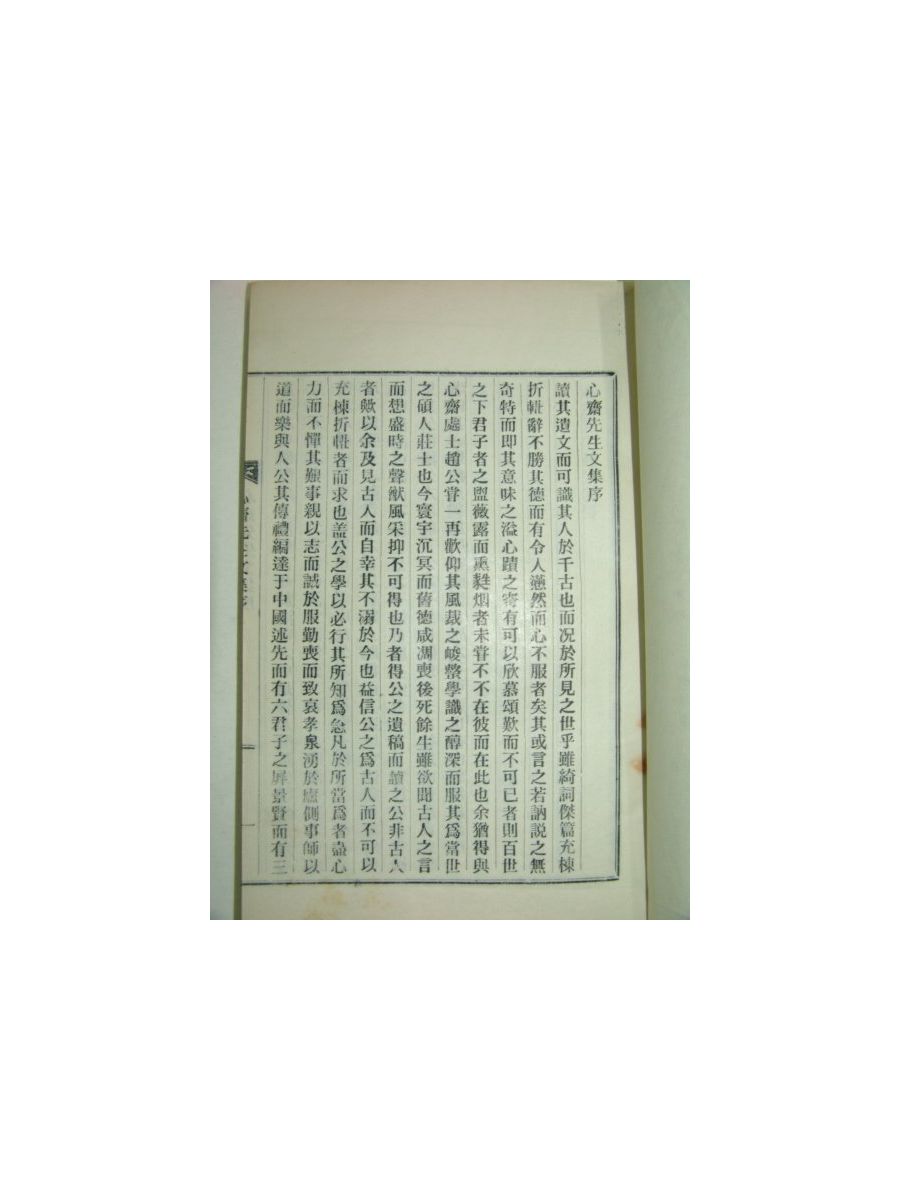 心齋先生文集序
讀其遺文而可識其人於千古也而况於所見之世乎雖綺詞傑篇充棟
折軸辭不勝其德而有令人邈然而心不服者矣其或言之若訥説之無
奇特而即其意味之溢心蹟之寄有可以欣慕頌歎而不可已者則百世
之下君子者之盥薇露而熏㷊烟者未甞不不在彼而在此也余猶得與
心齋處士趙公甞一再歡仰其風裁之峻整學識之醇深而服其爲當世
之碩人莊士也今寰宇沉冥而舊德咸凋喪後死餘生雖欲聞古人之言
而想盛時之聲猷風采抑不可得也乃者得公之遺稿而讀之公非古人
者歟以余及見古人而自幸其不溺於今也益信公之爲古人而不可以
充棟折軸者而求也盖公之學以必行其所知爲急凡於所當爲者盡心
力而不憚其艱事親以志而誠於服勤喪而致哀孝泉湧於廬側事師以
道而樂與人公其傳禮編達于中國述先而有六君子之屛景賢而有三
心齋先生文集序
一